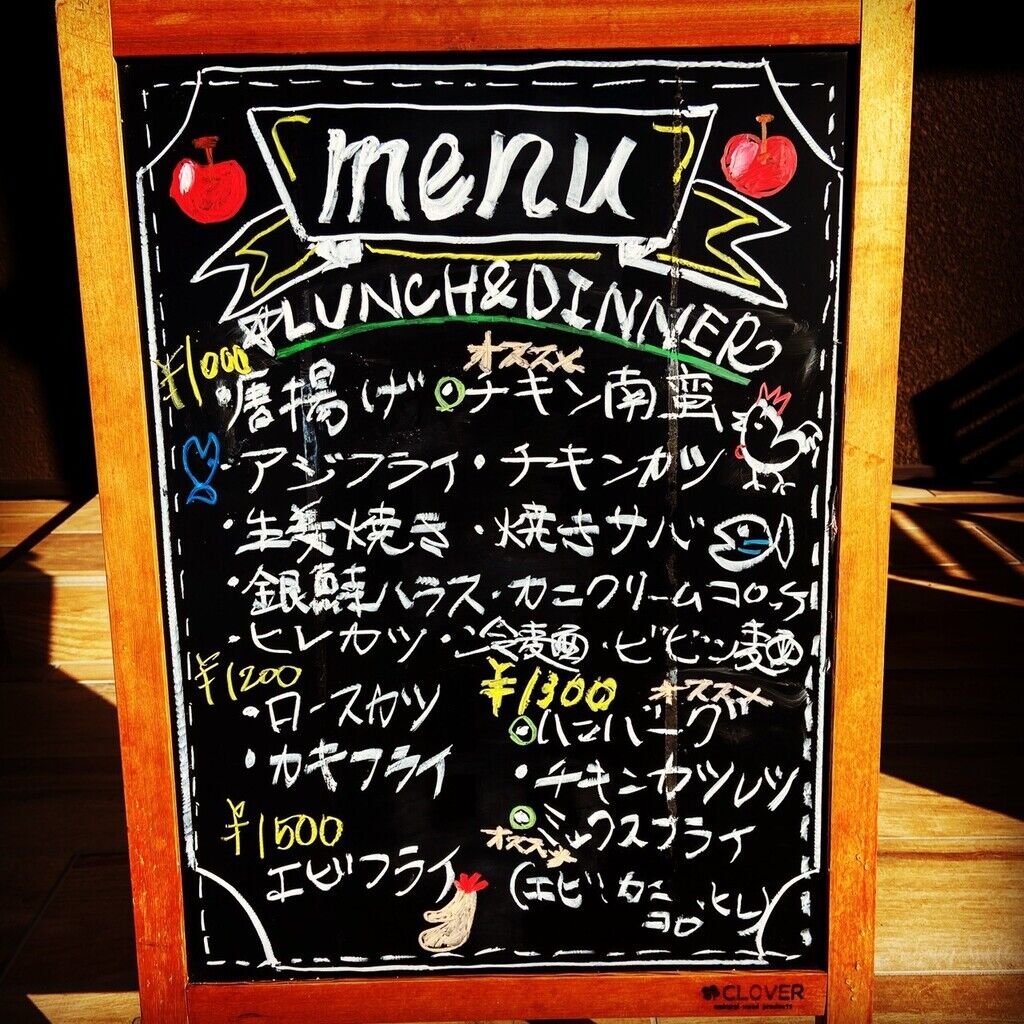 menu
☆LUNCH&DINNER
¥1000
オススメ
・唐揚げ ◎チキン南蛮
・アジフライ・チキンカツ
・生姜焼き ・焼きサバ
・銀鮭ハラス・カニクリームコロッケ
・ヒレカツ・冷麺・ビビン麺
¥1200
・ロースカツ
・カキフライ
¥1300 オススメ
◎ハンバーグ
・チキンカツレツ
◎ミックスフライ
オススメ
(エビ、カニ
コロ、ヒレ)
¥1500
エビフライ
CLOVER